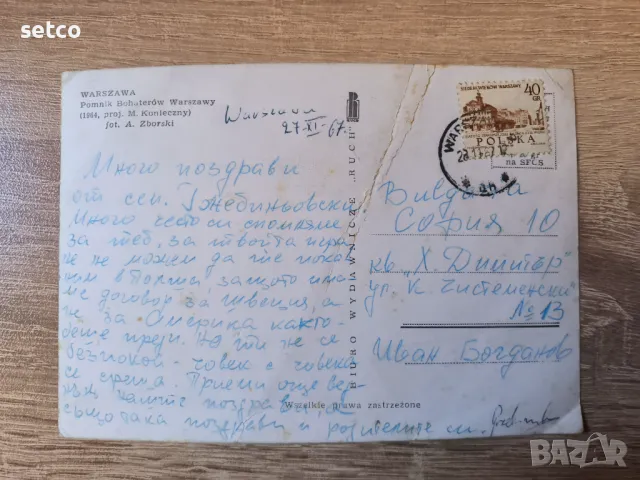 setco
WARSZAWA
Pomnik Bohaterów Warszawy
(1964, proj. M. Konieczny)
fot. A. Zborski
Warszawa
27-XI-67.
Много поздрави
от сем. Гжебиньовски
Много често си спомняме
за теб, за твойта
че не можем да те
ним в Полша, защото има-
ме договор за Швеция, а
не за Америка както
беше преди. Но ти не се
безпокой - човек с човека
се среща. Приеми още вед-
нъж нашите поздрави, а
също така поздрави и родителите си.
BIURO WYDAWNICZE „RUCH”
Wszelkie prawa zastrzeżone
40
GR
POLSKA
WAR
на SFCS
България
София 10
кв. „Х. Димитър”
ул. К. Чистеменски
№ 13
Иван Богданов
BAZAR